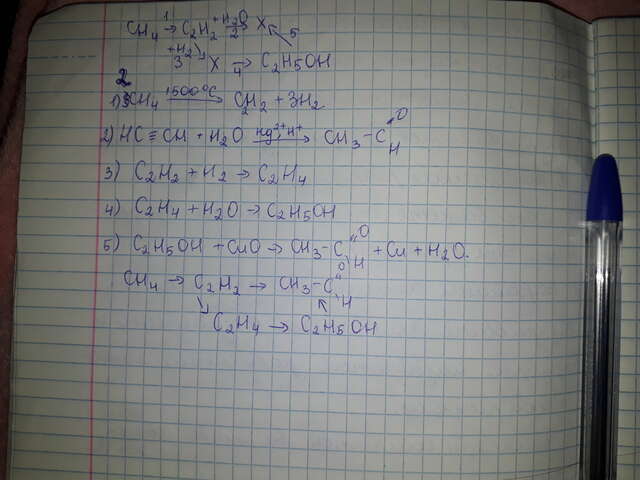 CH₄ →¹ C₂H₂ +H₂O →₂ X ↖ 5
+H₂ ↘ 3 X →₄ C₂H₅OH
1) 2CH₄ 1500°C → C₂H₂ + 3H₂
2) HC ≡ CH + H₂O Hg²⁺H⁺ → CH₃-C=O H
3) C₂H₂ + H₂ → C₂H₄
4) C₂H₄ + H₂O → C₂H₅OH
5) C₂H₅OH + CuO → CH₃-C=O \H + Cu + H₂O.
CH₄ → C₂H₂ → CH₃-C=O \H
↘ C₂H₄ → C₂H₅OH ↖